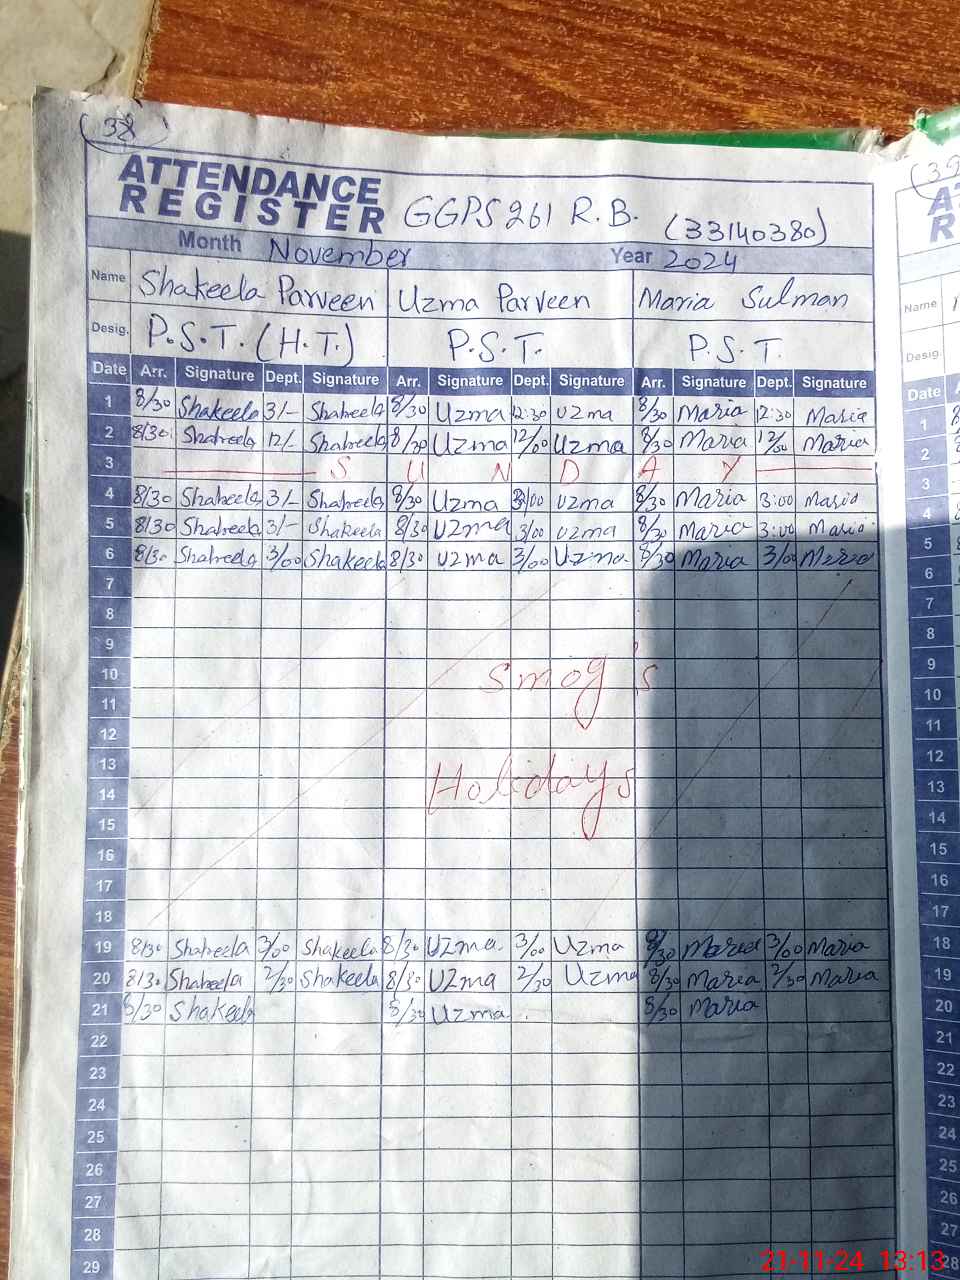 (38)
ATTENDANCE
REGISTER GGPS 261 R.B. (33140380)
Month November Year 2024
Name Shakeela Parveen Uzma Parveen Maria Sulman
Desig. P.S.T. (H.T.) P.S.T. P.S.T.
Date Arr. Signature Dept. Signature Arr. Signature Dept. Signature Arr. Signature Dept. Signature
1 8/30 Shakeela 3/- Shakeela 8/30 Uzma 12:30 Uzma 8/30 Maria 12:30 Maria
2 8/30 Shakeela 12/- Shakeela 8/30 Uzma 12/00 Uzma 8/30 Maria 12/00 Maria
3 S U N D A Y
4 8/30 Shakeela 3/- Shakeela 8/30 Uzma 3/00 Uzma 8/30 Maria 3:00 Maria
5 8/30 Shakeela 3/- Shakeela 8/30 Uzma 3/00 Uzma 8/30 Maria 3:00 Maria
6 8/30 Shakeela 3/00 Shakeela 8/30 Uzma 3/00 Uzma 8/30 Maria 3/00 Maria
7
8
9
10 Smog's
11
12
13
14 Holidays
15
16
17
18
19 8/30 Shakeela 3/00 Shakeela 8/30 Uzma 3/00 Uzma 8/30 Maria 3/00 Maria
20 8/30 Shakeela 2/30 Shakeela 8/30 Uzma 2/30 Uzma 8/30 Maria 2/30 Maria
21 8/30 Shakeela 8/30 Uzma 8/30 Maria
22
23
24
25
26
27
28
29
(39
A
R
Name
Desig.
Date
1
2
3
4
5
6
7
8
9
10
11
12
13
14
15
16
17
18
19
20
21
22
23
24
25
26
27
28
21-11-24 13:13